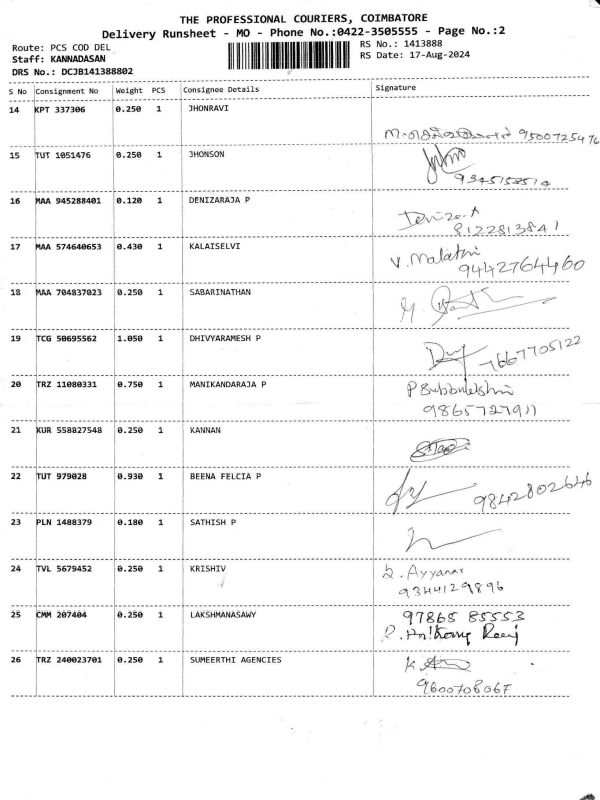 THE PROFESSIONAL COURIERS, COIMBATORE
Delivery Runsheet - MO - Phone No.:0422-3505555 - Page No.:2
Route: PCS COD DEL
RS No.: 1413888
Staff: KANNADASAN
RS Date: 17-Aug-2024
DRS No.: DCJB141388802
S No Consignment No Weight PCS Consignee Details Signature
14 KPT 337306 0.250 1 JHONRAVI
9500725476
15 TUT 1051476 0.250 1 JHONSON
16 MAA 945288401 0.120 1 DENIZARAJA P
8122813841
17 MAA 574640653 0.430 1 KALAISELVI
V. Malathi
9442764460
18 MAA 704837023 0.250 1 SABARINATHAN
19 TCG 50695562 1.050 1 DHIVYARAMESH P
7667705122
20 TRZ 11080331 0.750 1 MANIKANDARAJA P
9865727911
21 KUR 558827548 0.250 1 KANNAN
22 TUT 979028 0.930 1 BEENA FELCIA P
9842802646
23 PLN 1488379 0.180 1 SATHISH P
24 TVL 5679452 0.250 1 KRISHIV
Ayyanar
9344129896
25 CMM 207404 0.250 1 LAKSHMANASAWY
97865 85553
26 TRZ 240023701 0.250 1 SUMEERTHI AGENCIES